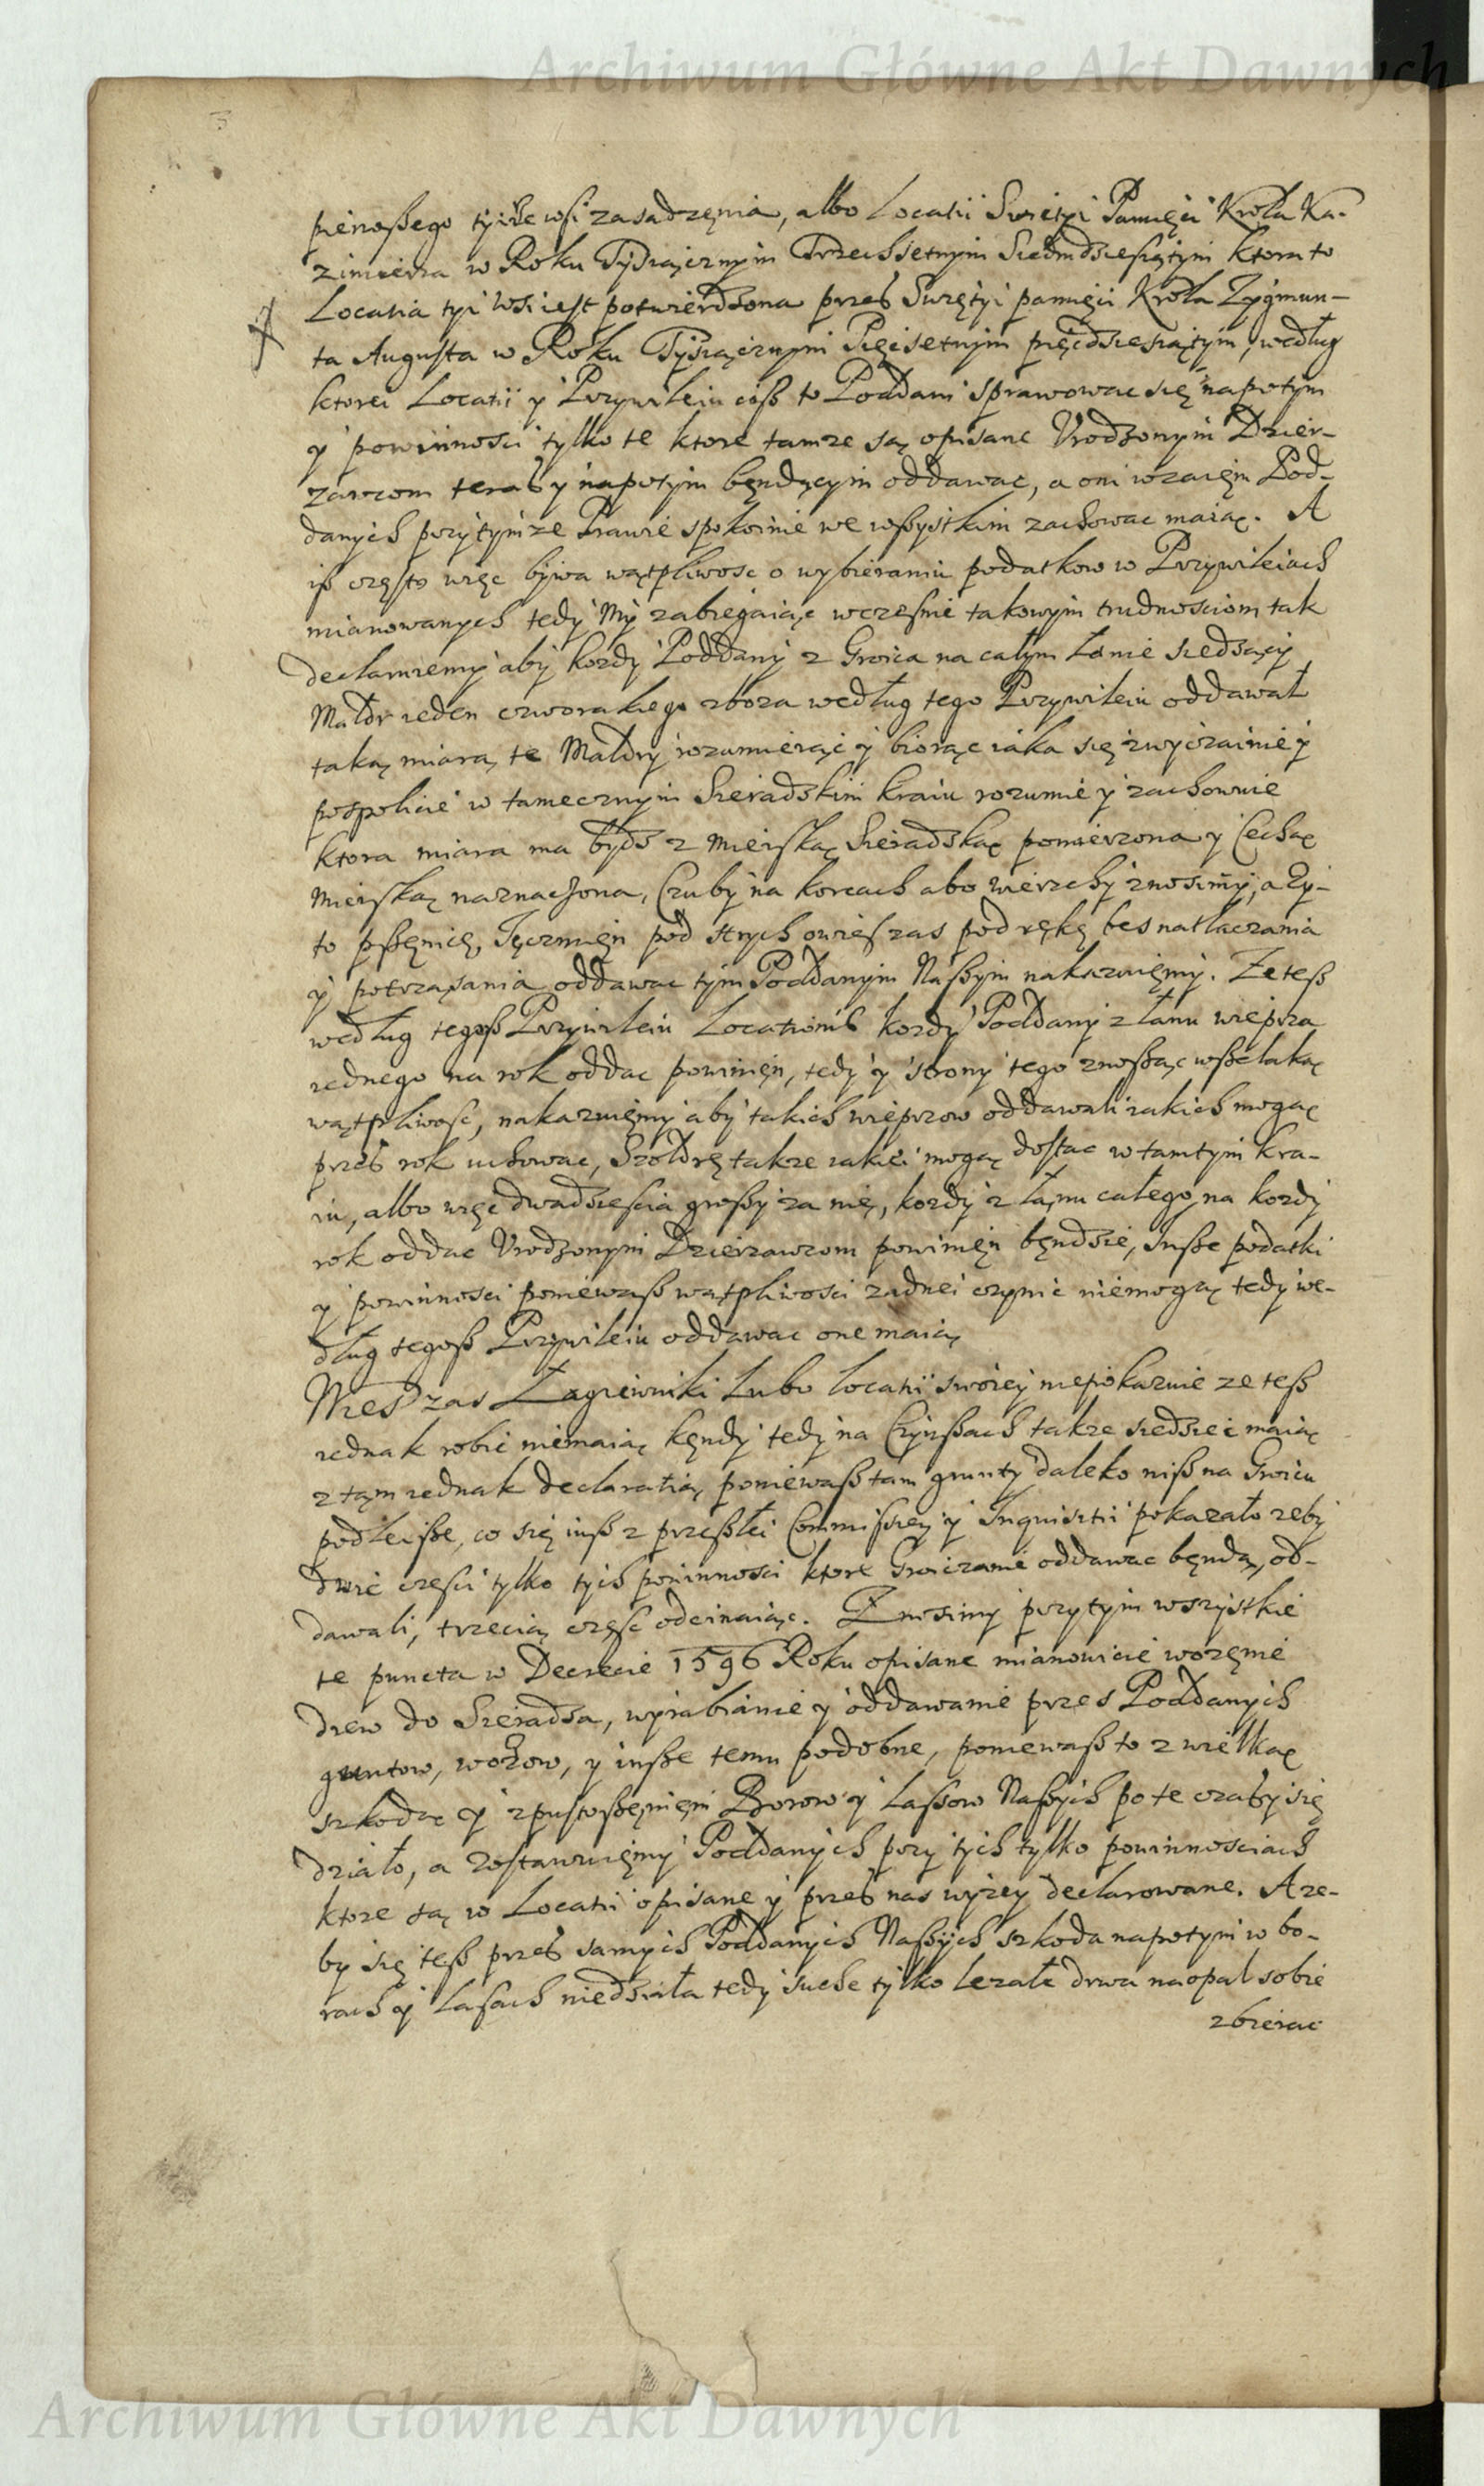 Archiwum Główne Akt Dawnych
pierwßego tyiże wsi zasadzęnia, albo Locatii Swiętyi Pamięci Krola Ka-
zimierza w Roku Tysiącznym Trzechsetnym Siedmdziesiątym ktora to
Locatia tyi wsi iest potwierdzona przeß Swiętyi pamięci Krola Zygmun-
ta Augusta w Roku Tysiącznym Pięcisetnym pięcdziesiątym, według
ktorei Locatii y Przywileiu ciß to Poddani sprawowac się napotym
y powinnosci tylko te ktore tamze są opisane Vrodzonym Dzier-
zawcom teraß y napotym będącym oddawac, a oni wzaięm Pod-
danych przytymze Prawie spokoinie we wßystkim zachowac maią. A
iß często więc bywa wątpliwosc o wybieraniu podatkow w Przywileiach
mianowanych tedy My zabiegaiąc wczesnie takowym trudnosciom tak
declaruiemy aby kozdy Poddany z Groica na całym Łanie siedzący
Małdr ieden czworakiego zboza według tego Przywileiu oddawał
taką miarą te Małdry rozumieiąc y biorąc iaka się zwyczainie y
pospolicie w tamecznym Sieradzkim kraiu rozumie y zachowuie
ktora miara ma bydz z mieiską Sieradzką pomierzona y Cechą
mieiską naznaczona, Czuby na korcach abo wierzchy znosimy, a Zy-
to pßęnicę, Jęczmięn pod strych owies zas pod rękę bes natłaczania
y potrząsania oddawac tym Poddanym Naßym nakazuięmy. Ze teß
według tegoß Przywileiu Locationis kozdy Poddany z łanu wieprza
iednego na rok oddac powinięn, tedy y strony tego znoßąc wßelaką
wątpliwosc, nakazuięmy aby takich wieprzow oddawali iakich mogą
przeß rok uchowac, Szołdrę takze iakiei mogą dostac w tamtym kra-
iu, albo więc dwadziescia großy za nię, kozdy z łanu całego na kozdy
rok oddac Vrodzonym Dzierzawcom powinięn będzie, Inße podatki
y powinnosci poniewaß wątpliwosci zadnei czynic niemogą tedy we-
dług tegoß Przywileiu oddawac one maią
Wies zas Łagiewniki Lubo locatii swoiey niepokazuie ze teß
iednak robic niemaią kędy tedy na Czynßach takze siedziec maią
z tąm iednak declaratią, poniewaß tam grunty daleko niß na Groicu
podleiße, co się iuß z przeßłei Commissiey y Inquisitii pokazało zeby
dwie częsci tylko tych powinnosci ktore Groiczanie oddawac będą, od-
dawali, trzecią częsc odcinaiąc. Znosimy przytym wszystkie
te puncta w Decrecie 1596 Roku opisane mianowicie wozęnie
drew do Sieradza, wyrabianie y oddawanie przes Poddanych
guntow, wozow, y inße temu podobne, poniewaß to z wielką
szkodą y zpustoßęnięm Borow y Lassow Naßych po te czasy się
działo, a zostawuięmy Poddanych przy tych tylko powinnosciach
ktore są w Locatii opisane y przeß nas wyzey declarowane. A ze-
by się teß przeß samych Poddanych Naßych szkoda napotym w bo-
rach y Lasach niedziała tedy suche tylko lezałe drwa na opal sobie
zbierac
Archiwum Główne Akt Dawnych